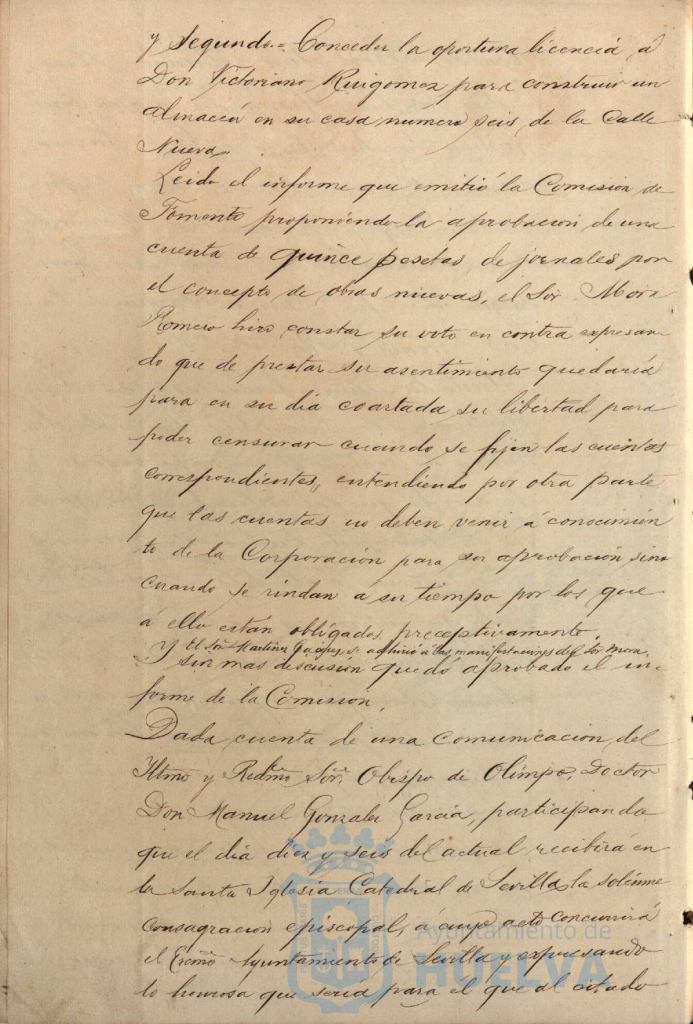 y Segundo.= Conceder la oportuna licencia á
Don Victoriano Ruigomez para construir un
almacén en su casa numero seis de la Calle
Nueva.
Leido el informe que emitió la Comisión de
Fomento proponiendo la aprobación de una
cuenta de quince pesetas de jornales por
el concepto de obras nuevas, el Sor. Mora
Romero hizo constar su voto en contra expresan
do que de prestar su asentimiento quedaría
para en su dia coartada su libertad para
poder censurar cuando se fijen las cuentas
correspondientes, entendiendo por otra parte
que las cuentas no deben venir á conocimien
to de la Corporación para su aprobación sino
cuando se rindan a su tiempo por los que
á ello están obligados preceptivamente.
Y El Sor. Martinez se adhirió a las manifestaciones del Sor Mora.
sin mas discusión quedó aprobado el in-
forme de la Comision.
Dada cuenta de una comunicacion del
Iltmo y Redmo Sor. Obispo de Olimpo, Doctor
Don Manuel Gonzalez Garcia, participando
que el dia diez y seis del actual recibirá en
la Santa Iglesia Catedral de Sevilla la solemne
consagracion episcopal, á cuyo acto concurrirá
el Excmo Ayuntamiento de Sevilla y expresando
lo honrosa que seria para él que al citado
Ayuntamiento de
HUELVA